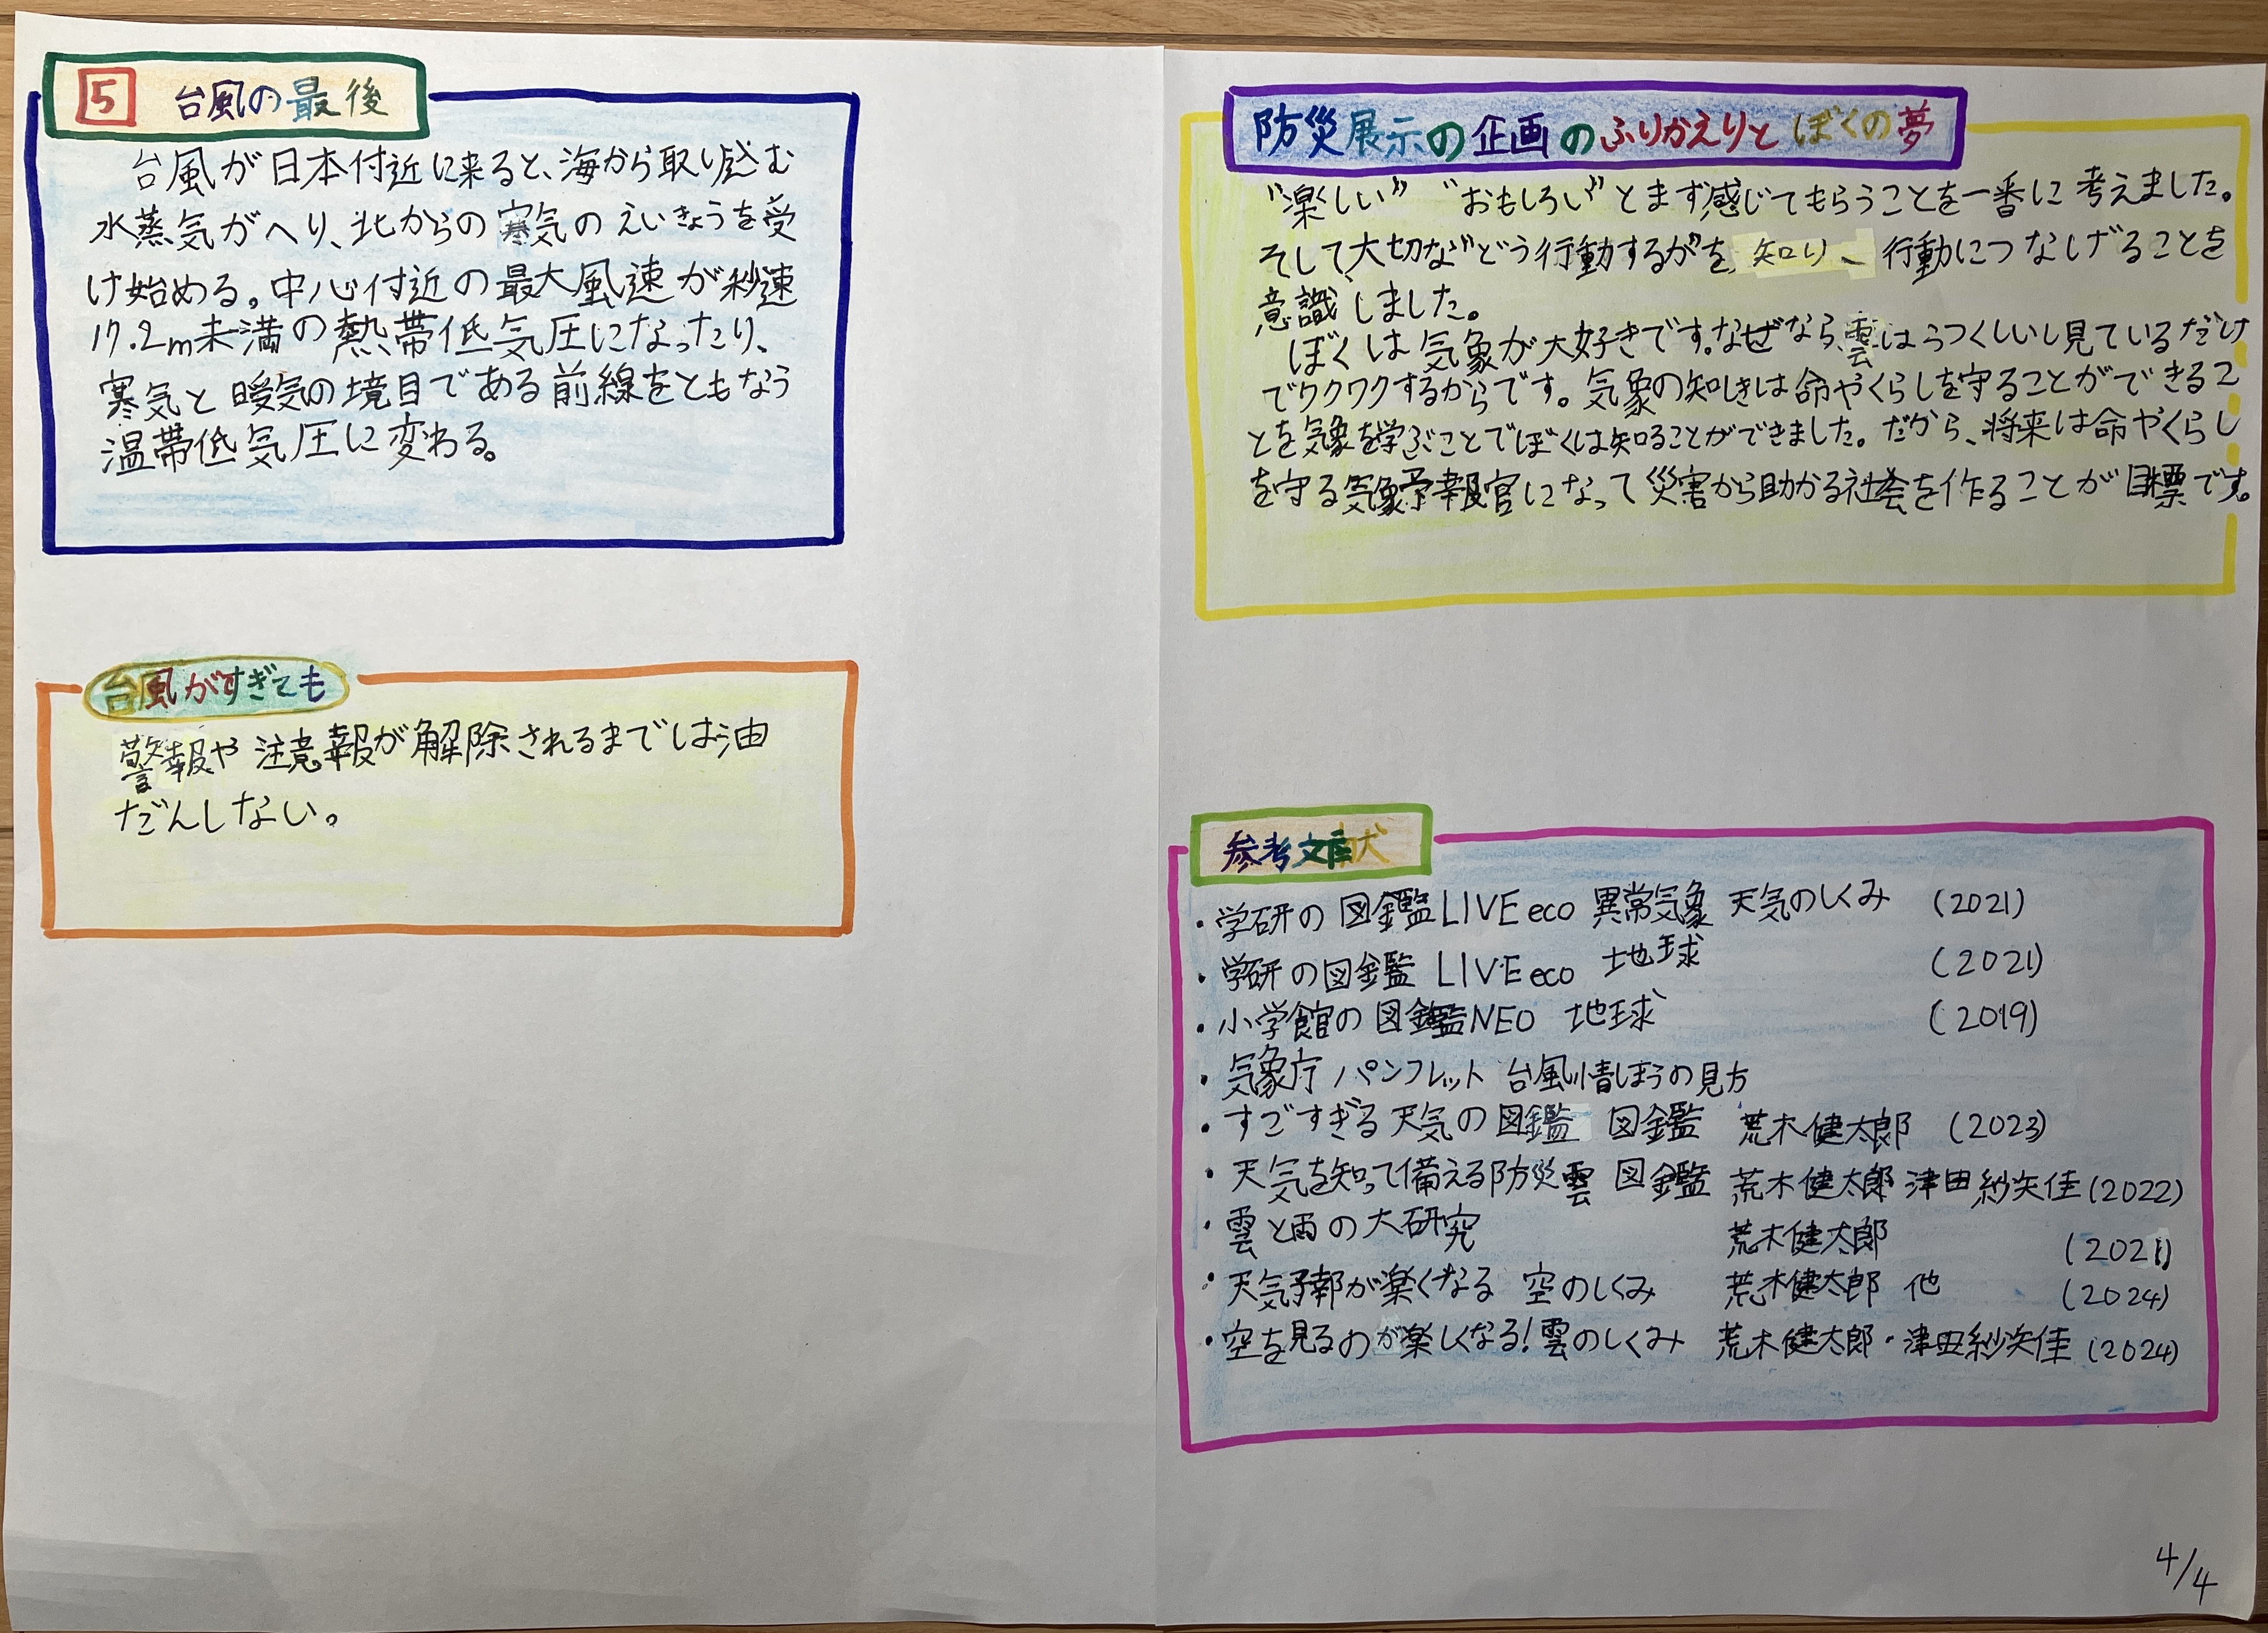 5 台風の最後
台風が日本付近に来ると、海から取り込む
水蒸気がへり、北からの寒気のえいきょうを受
け始める。中心付近の最大風速が秒速
17.2m未満の熱帯低気圧になったり、
寒気と暖気の境目である前線をともなう
温帯低気圧に変わる。
台風がすぎても
警報や注意報が解除されるまでは油
だんしない。
防災展示の企画のふりかえりとぼくの夢
“楽しい” “おもしろい”とまず感じてもらうことを一番に考えました。
そして、大切な“どう行動するか”を知り、行動につなげることを
意識しました。
ぼくは気象が大好きです。なぜなら、雲はうつくしいし見ているだけ
でワクワクするからです。気象の知しきは命やくらしを守ることができるこ
とを気象を学ぶことでぼくは知ることができました。だから、将来は命やくらし
を守る気象予報官になって災害から助かる社会を作ることが目標です。
参考文献
・学研の図鑑LIVE eco 異常気象 天気のしくみ (2021)
・学研の図鑑 LIVE eco 地球 (2021)
・小学館の図鑑NEO 地球 (2019)
・気象庁 パンフレット 台風情ほうの見方
・すごすぎる天気の図鑑 図鑑 荒木健太郎 (2023)
・天気を知って備える防災雲 図鑑 荒木健太郎 津田紗矢佳 (2022)
・雲と雨の大研究 荒木健太郎 (2021)
・天気予報が楽くなる 空のしくみ 荒木健太郎 他 (2024)
・空を見るのが楽しくなる!雲のしくみ 荒木健太郎・津田紗矢佳 (2024)
4/4